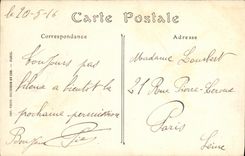 le 20-5-16
Carte Postale
Correspondance
Adresse
toujours pas
a bientôt la
prochaine permission
Bonjour
Madame Lambert
21 Rue Pierre-Leroux
Paris
Seine